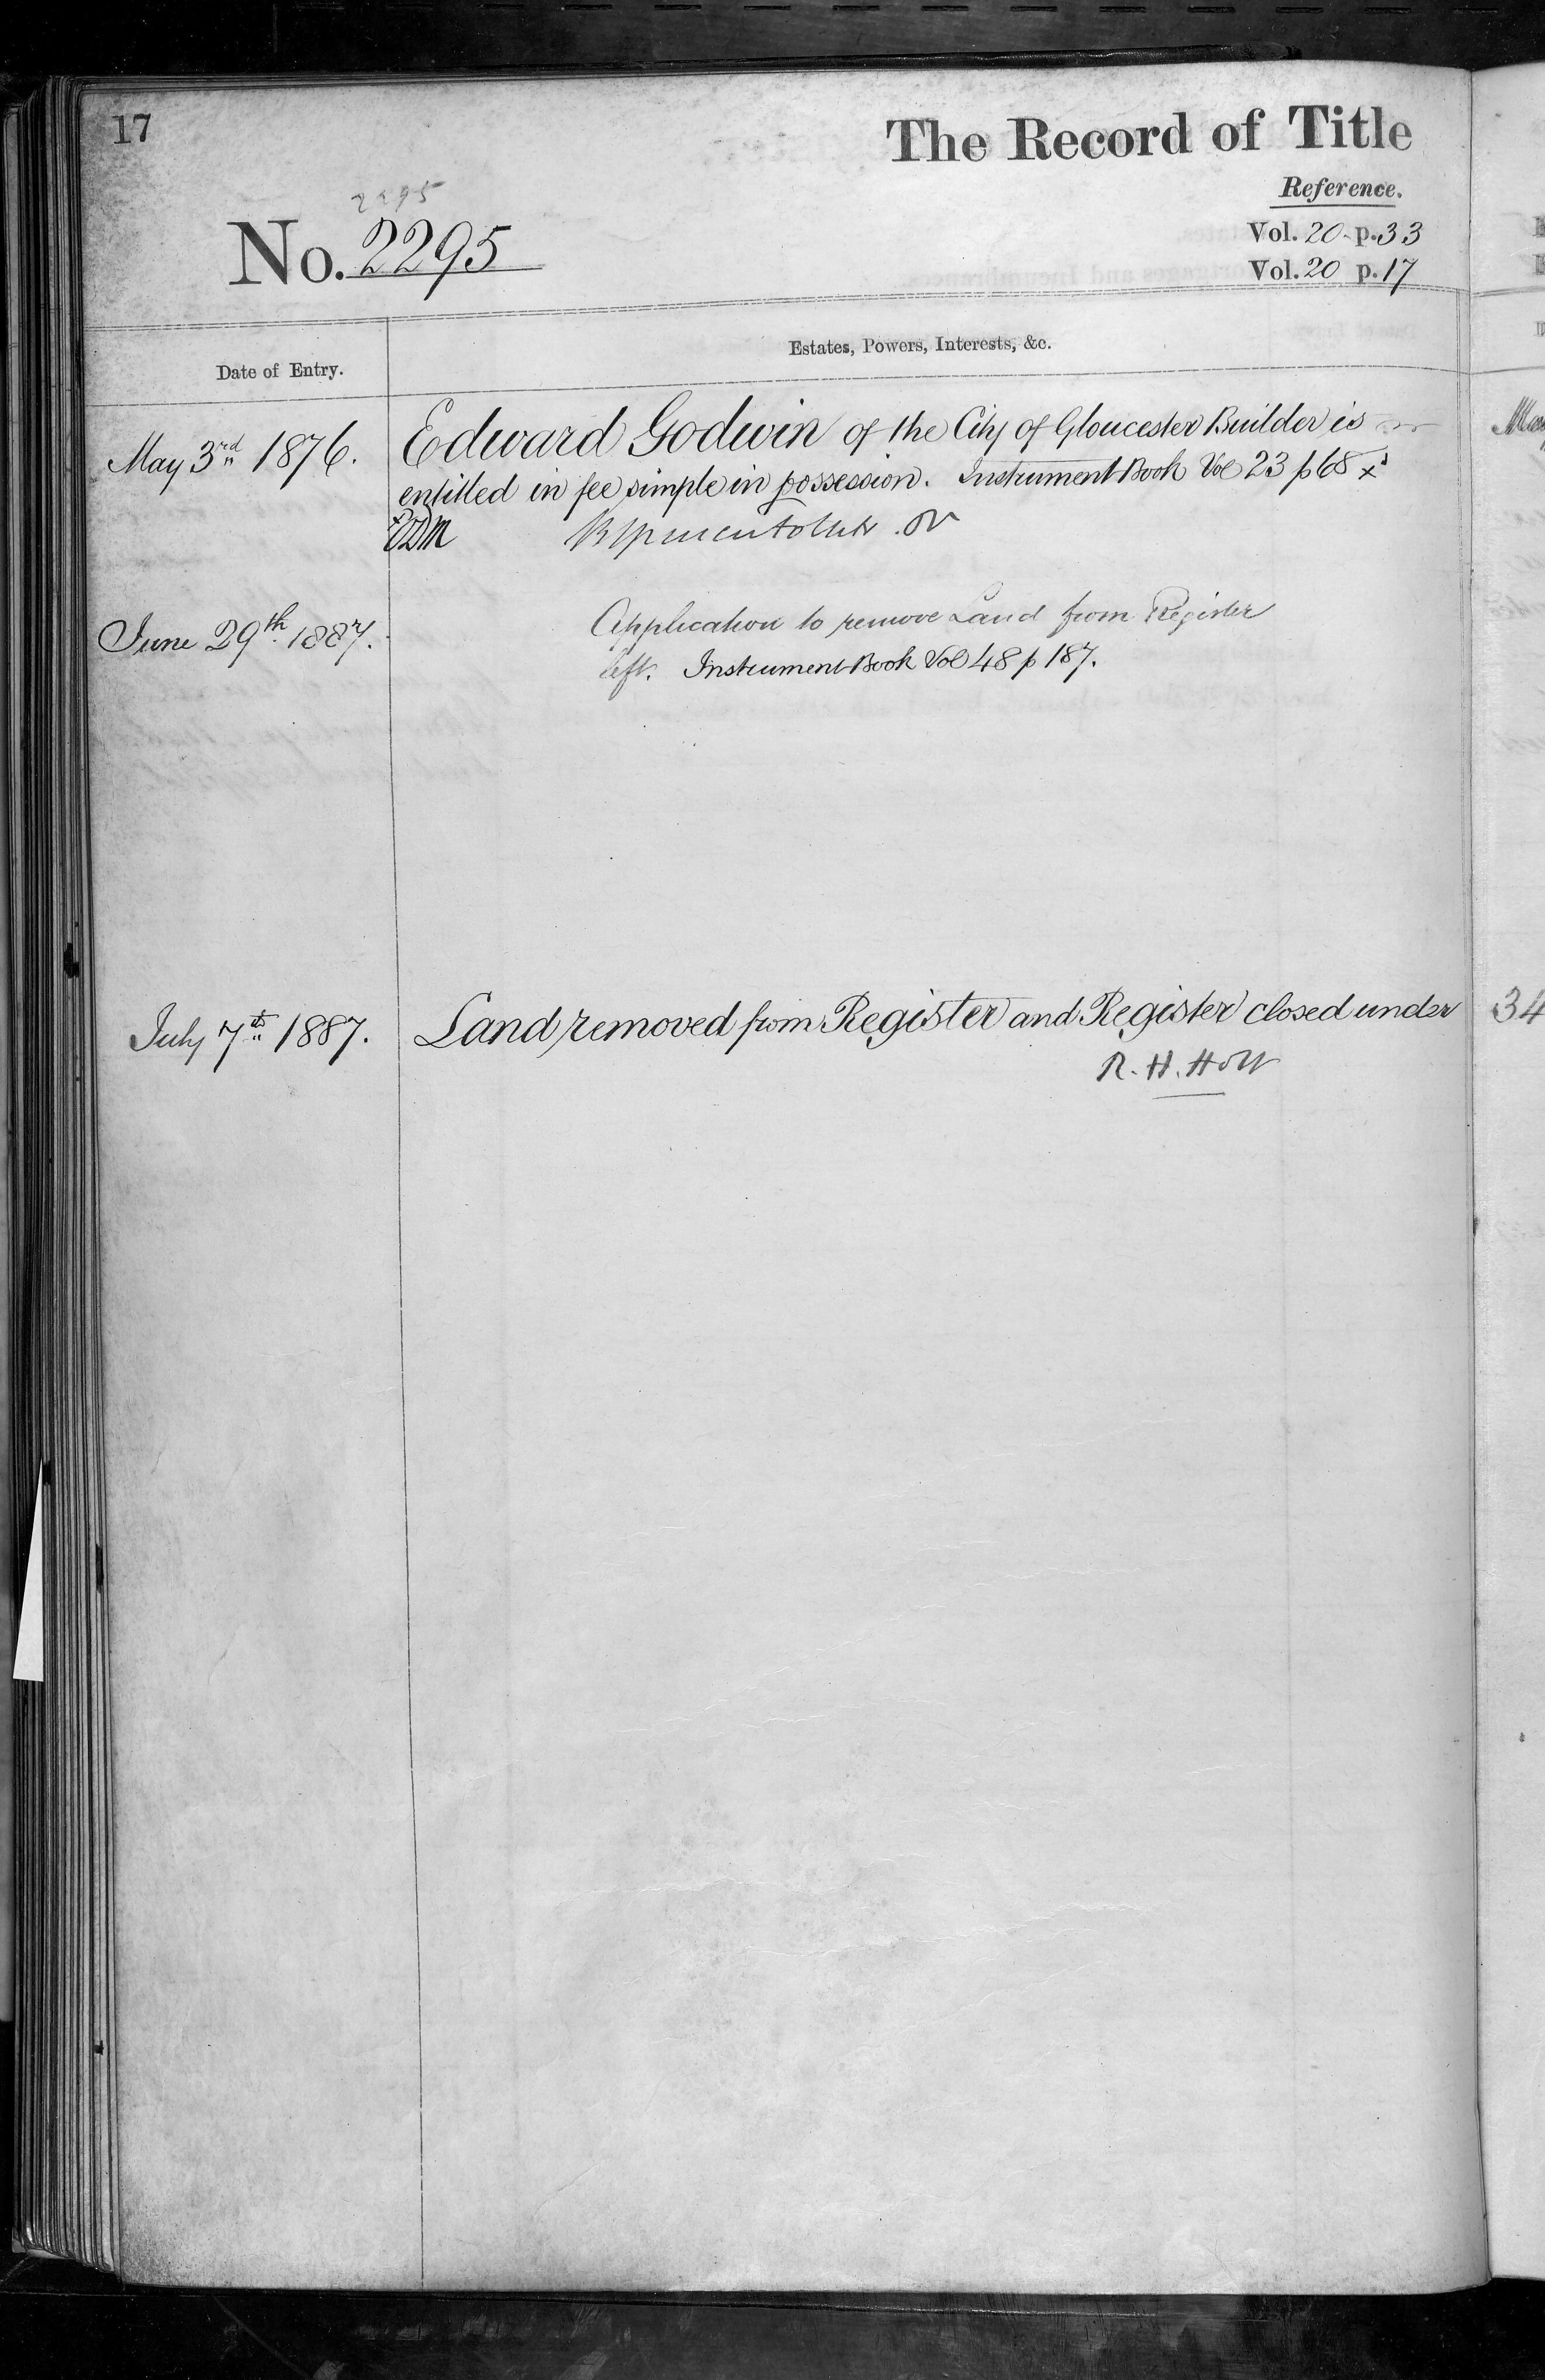 17
The Record of Title
Reference.
2295
No. 2295
Vol. 20 p. 33
Vol. 20 p. 17
Date of Entry.
Estates, Powers, Interests, &c.
May 3rd 1876.
Edward Godwin of the City of Gloucester Builder is
entitled in fee simple in possession. Instrument Book Vol 23 p 68
June 29th 1887.
Application to remove Land from Register
left. Instrument Book Vol 48 p 187.
July 7th 1887.
Land removed from Register and Register closed under
34
R. H. Holt